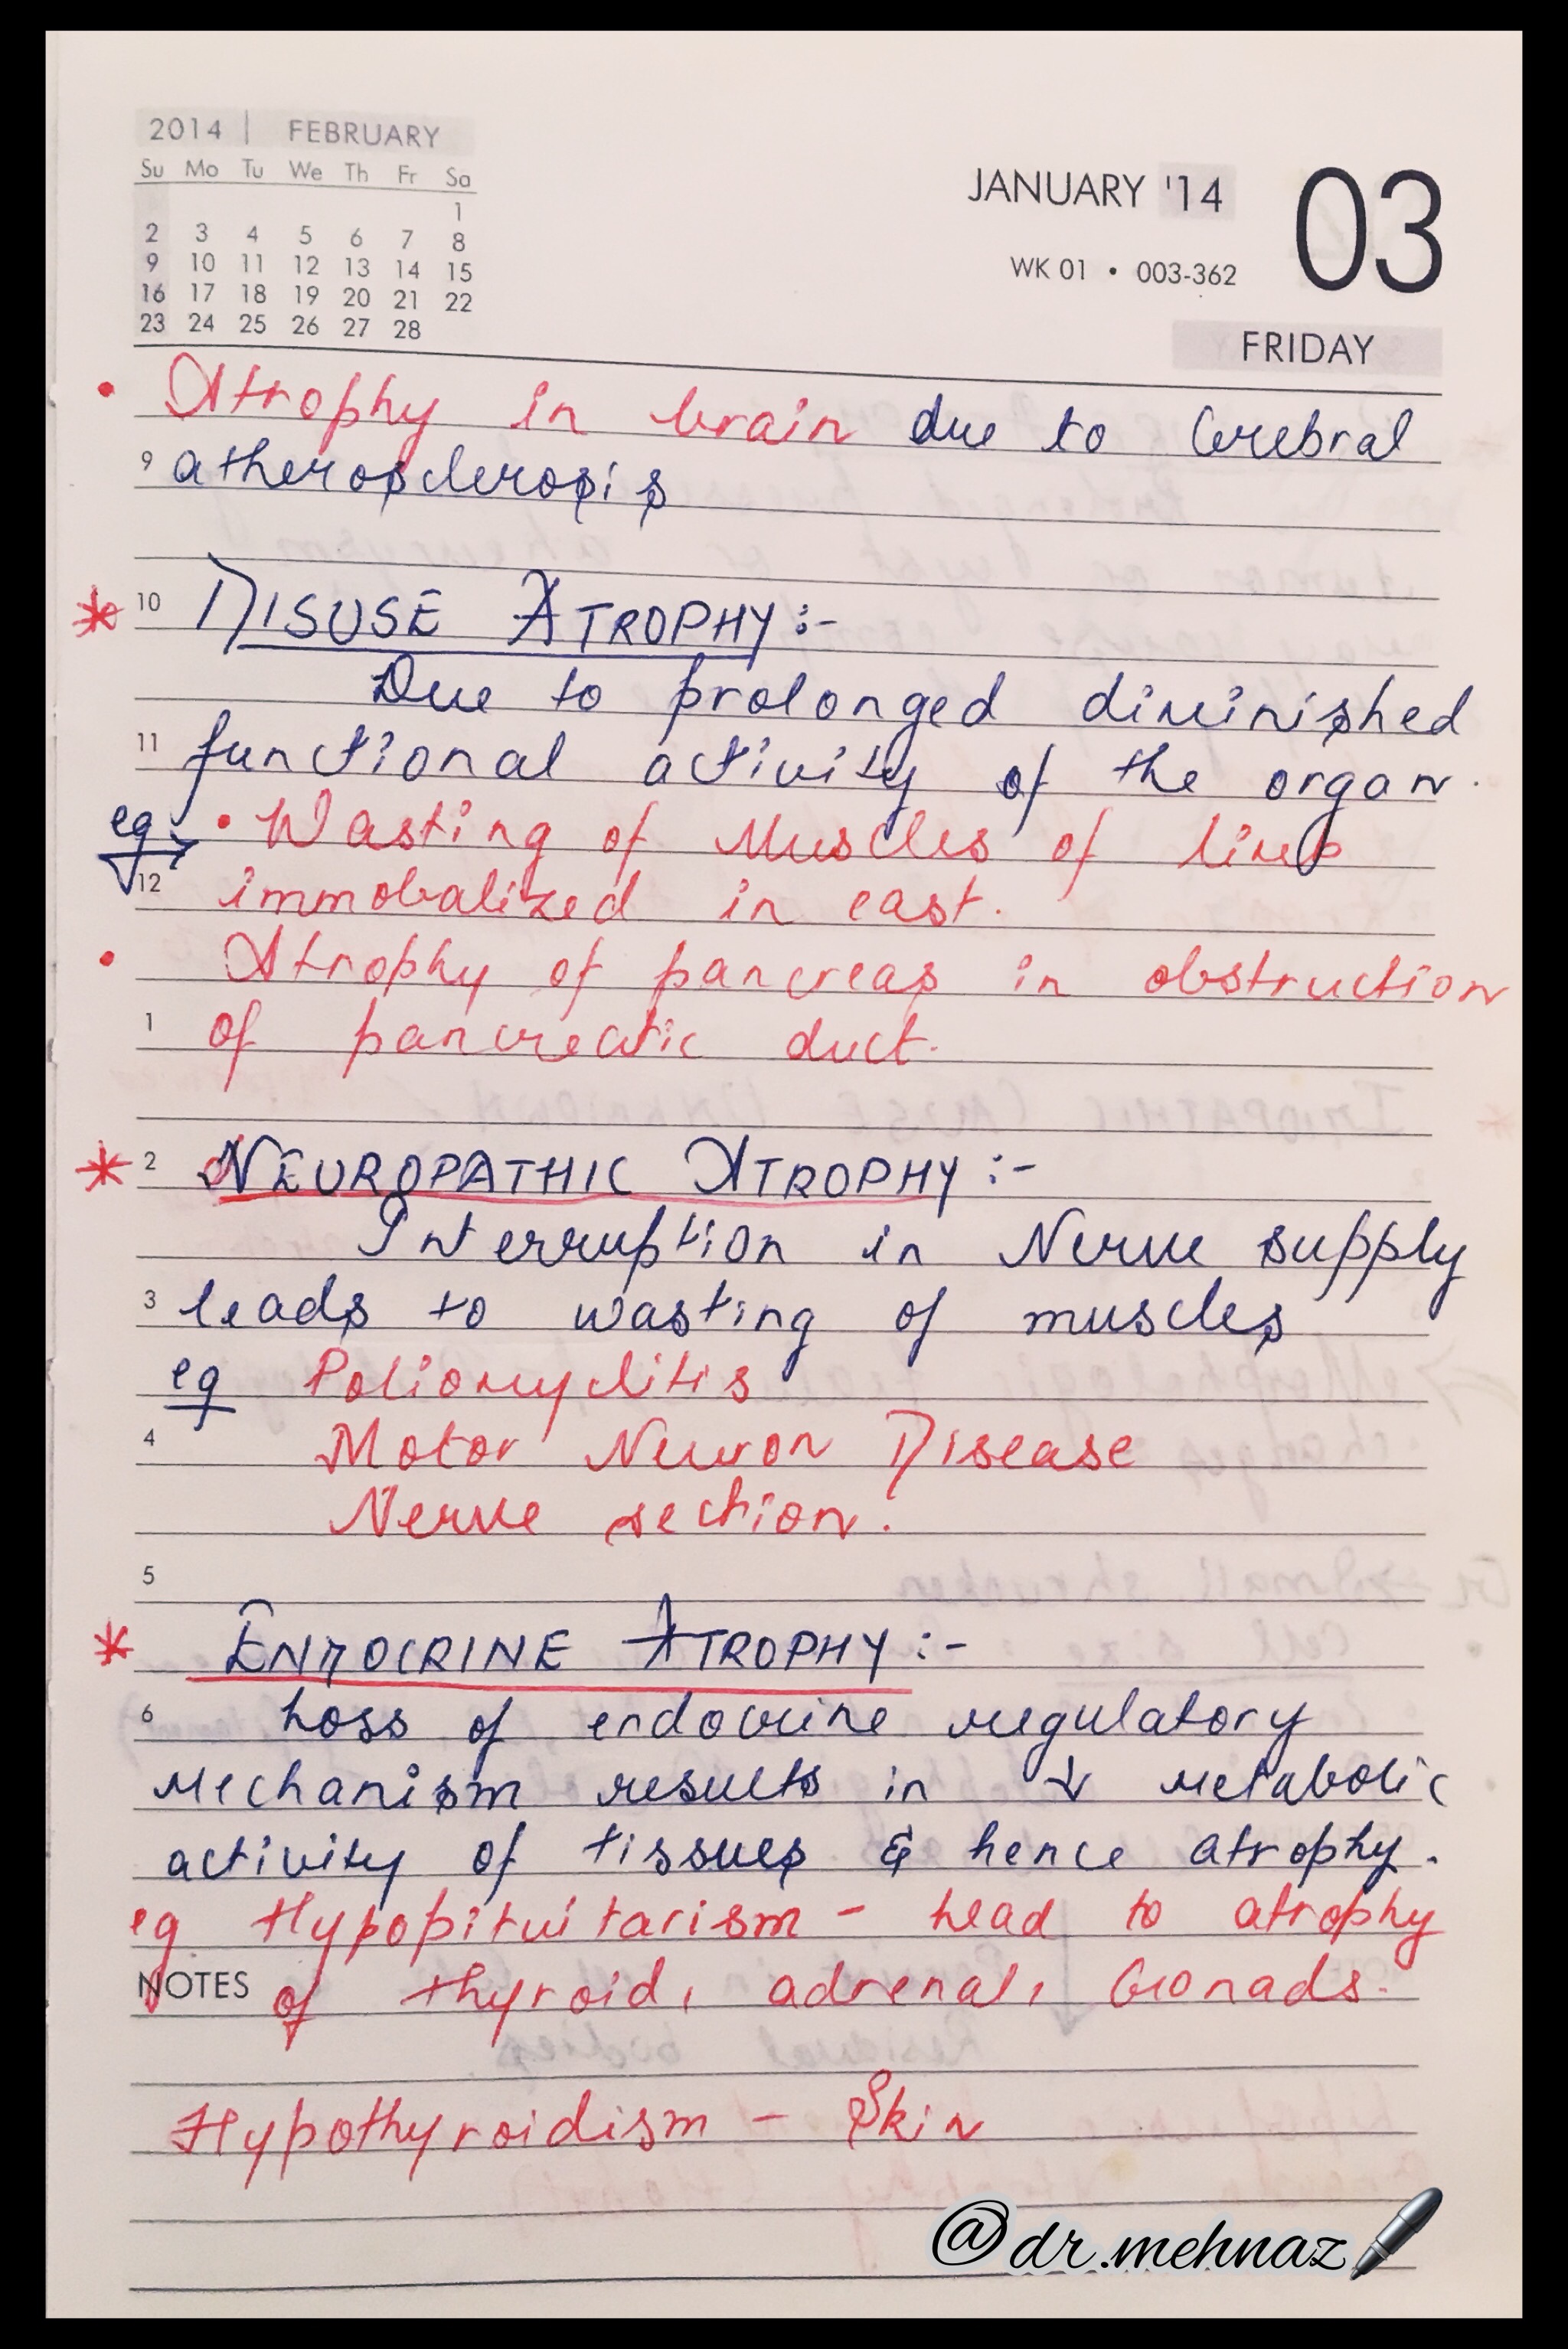 2014 | FEBRUARY
Su Mo Tu We Th Fr Sa
1
2 3 4 5 6 7 8
9 10 11 12 13 14 15
16 17 18 19 20 21 22
23 24 25 26 27 28
JANUARY '14 03
WK 01 • 003-362
FRIDAY
• Atrophy in brain due to Cerebral
9 atherosclerosis
* 10 DISUSE ATROPHY :-
Due to prolonged diminished
11 functional activity of the organ.
eg • Wasting of Muscles of limb
12 immobalized in cast.
• Atrophy of pancreas in obstruction
1 of pancreatic duct.
* 2 NEUROPATHIC ATROPHY :-
Interruption in Nerve supply
3 leads to wasting of muscles
eg Poliomylitis
4 Motor Neuron Disease
Nerve section.
5
* ENDOCRINE ATROPHY :-
6 Loss of endocrine regulatory
Mechanism results in ↓ Metabolic
activity of tissues & hence atrophy.
eg Hypopituitarism - lead to atrophy
NOTES of thyroid, adrenal, Gonads.
Hypothyroidism - Skin
@dr.mehnaz